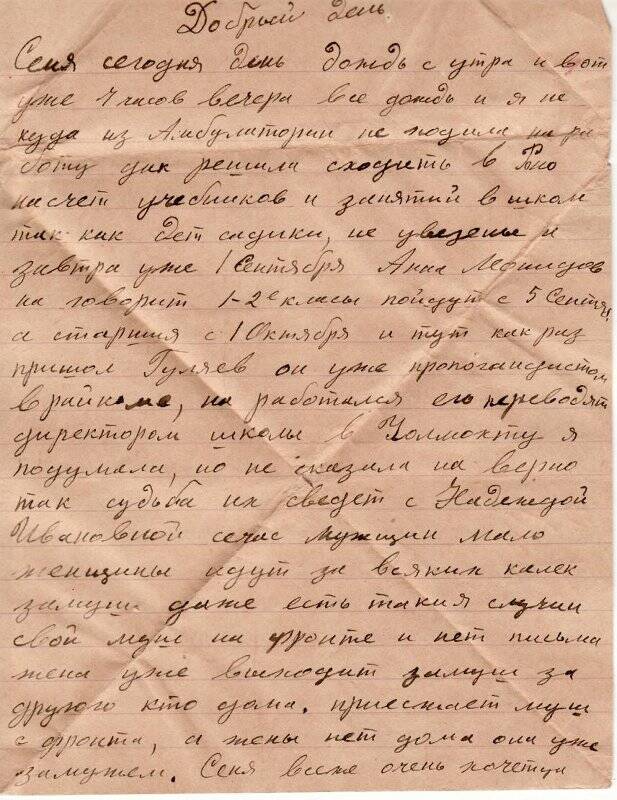 Добрый день
Сеня сегодня день дождь с утра и вот
уже 4 часов вечера все дождь и я не
куда из Амбулатории не ходила на ра
боту дак решила сходить в
насчет учебников и занятий в школ
так как дет садики, не уведены и
завтра уже 1 Сентября Анна Леонидов
на говорит 1-2е класы пойдут с 5 Сентяб
а старшия с 1 Октября и тут как раз
пришол Гуляев он уже пропогандистом
в райкоме, на работался его переводят
директором школы в Чолмохту я
подумала, но не сказала на верно
так судьба их сведет с Надеждой
Ивановной сечас мужщин мало
женщины идут за всяких калек
замуш даже есть такия случаи
свой муш на фронте и нет письма
жена уже выходит замуш за
другого кто дома. приежает муш
с фронта, а жены нет дома она уже
замужем. Сеня всеже очень хочетца